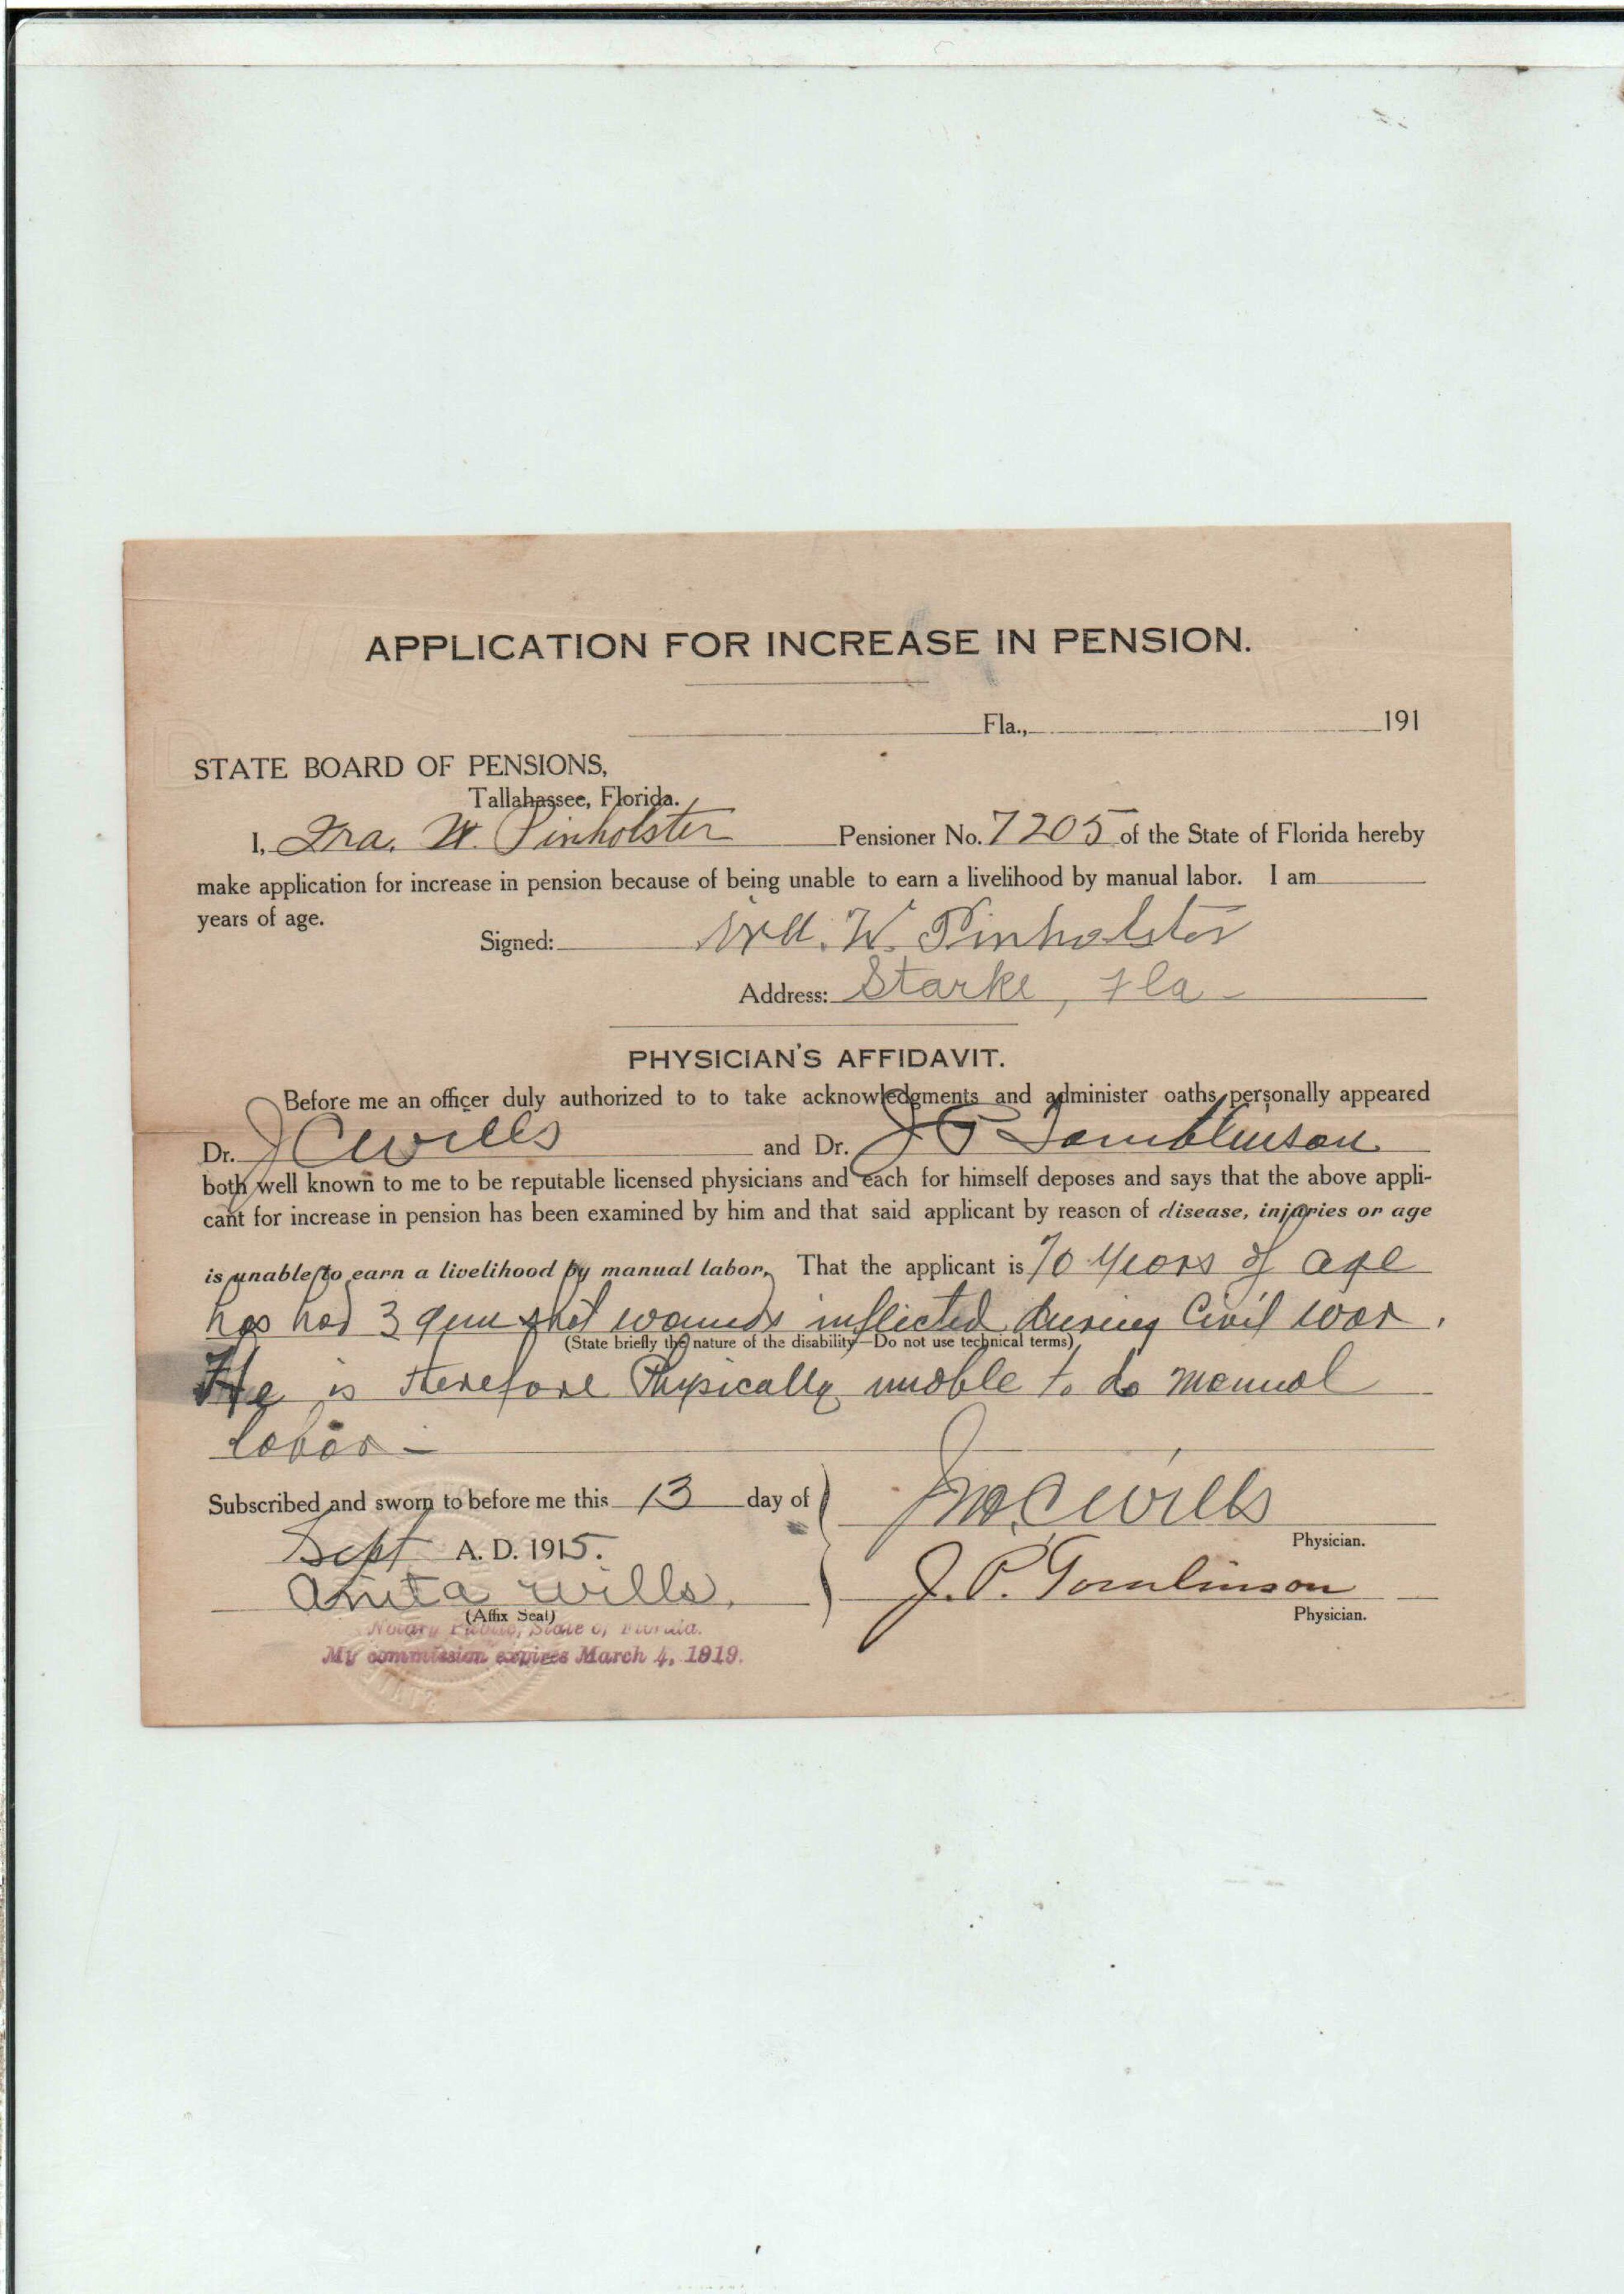 APPLICATION FOR INCREASE IN PENSION.
Fla., 191
STATE BOARD OF PENSIONS,
Tallahassee, Florida.
I, Ira. W. Pinholster Pensioner No. 7205 of the State of Florida hereby
make application for increase in pension because of being unable to earn a livelihood by manual labor. I am
years of age.
Signed: Ira. W. Pinholster
Address: Starke, Fla
PHYSICIAN'S AFFIDAVIT.
Before me an officer duly authorized to to take acknowledgments and administer oaths, personally appeared
Dr. J C Wills and Dr. J P Tomblinson
both well known to me to be reputable licensed physicians and each for himself deposes and says that the above appli-
cant for increase in pension has been examined by him and that said applicant by reason of disease, injuries or age
is unable to earn a livelihood by manual labor. That the applicant is 70 years of age
has had 3 gun shot wounds inflicted during Civil war.
(State briefly the nature of the disability—Do not use technical terms)
He is therefore Physically unable to do manual
labor -
Subscribed and sworn to before me this 13 day of
Jno. C Wills
Physician.
Sept A. D. 1915.
Anita Wills.
J. P. Tomlinson
Physician.
(Affix Seal)
Notary Public, State of Florida.
My commission expires March 4, 1919.